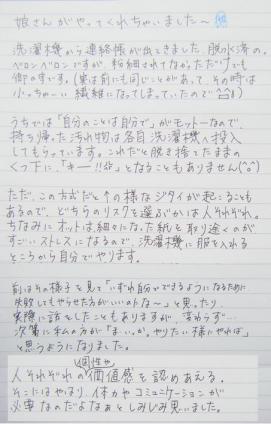 娘さんがやってくれちゃいました〜
洗濯機から連絡帳が出てきました。脱水済の。
ベロンベロンですが、粉砕されてなかっただけでも
御の字です。(実は前にも同じことがあって、その時は
小っちゃーい繊維になってしまっていたので
うちでは「自分のことは自分で」がモットーなので、
持ち帰った汚れ物は各自洗濯機へ投入
してもらっています。これだと脱ぎ捨てたままの
くつ下に、「キー!!」となることもありません(^o^)
ただ、この方式だと↑の様なジタイが起こることも
あるので、どちらのリスクを選ぶかは人それぞれ。
ちなみにオットは細々になった紙を取り除くのが
すごいストレスになるので、洗濯機に服を入れる
ところから自分でやります。
前はその様子を見て「いずれ自分でできるようになるために
失敗してもやらせた方がいいのかな〜」と思ったり、
実際に話をしたこともありますが、変わらず…
次第に私の方が「まいっか。やりたい様にやれば」
と思うようになりました。
人それぞれの個性や価値感を認めあえる。
そこにはやはり、体力やコミュニケーションが
必要なのだよなぁとしみじみ思いました。